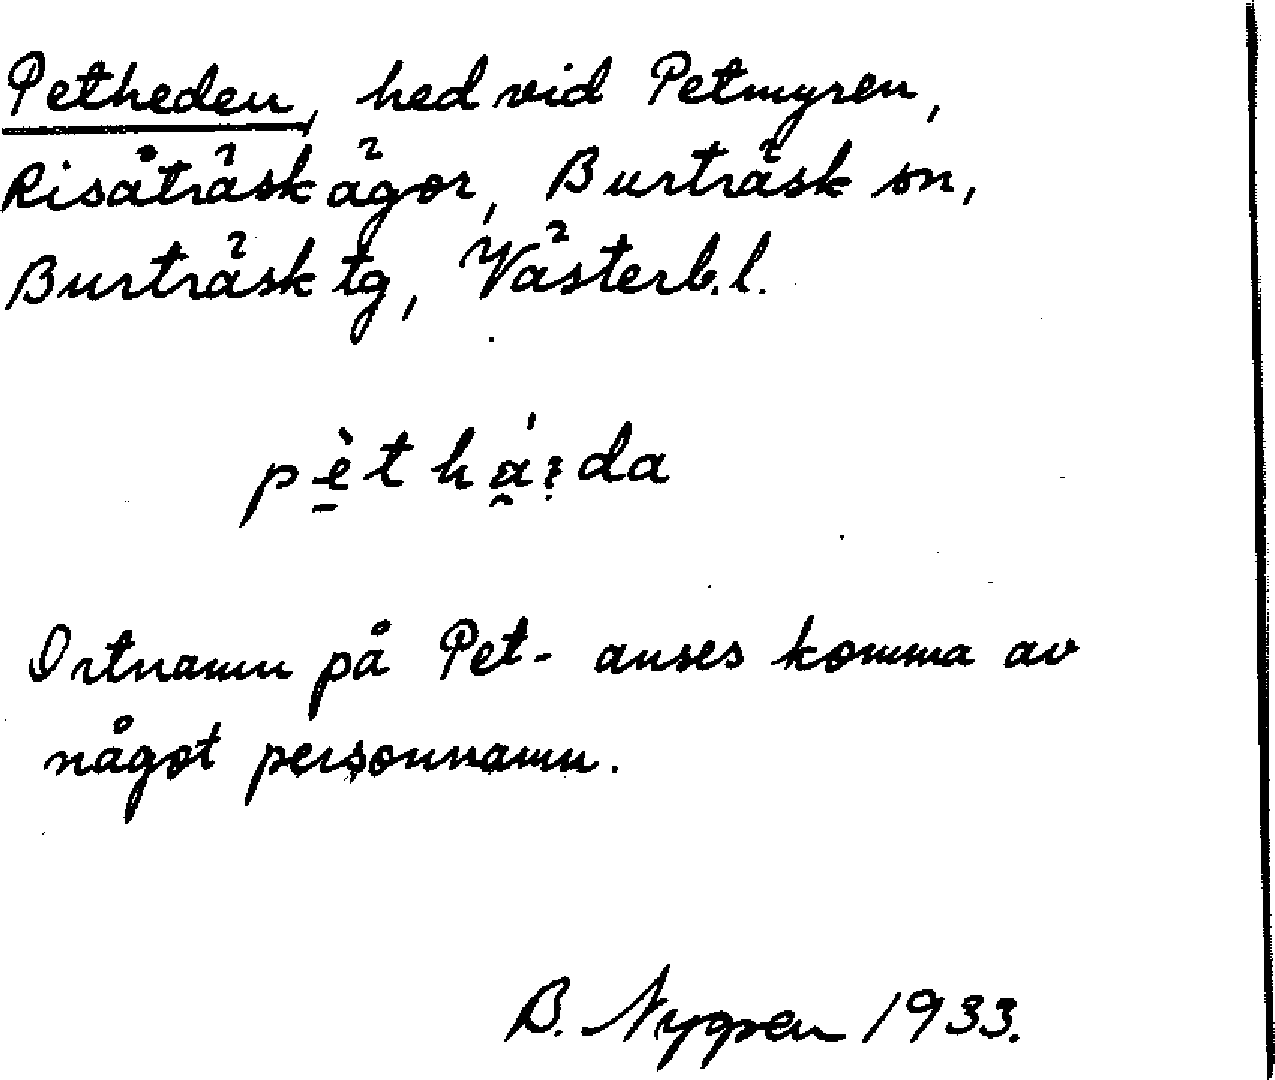 Petheden, hed vid Petmyren,
Risåträsk ägor, Burträsk sn,
Burträsk tg, Västerb. l.
pèt há:da
Ortnamn på Pet- anses komma av
något personnamn.
B. Nygren 1933.